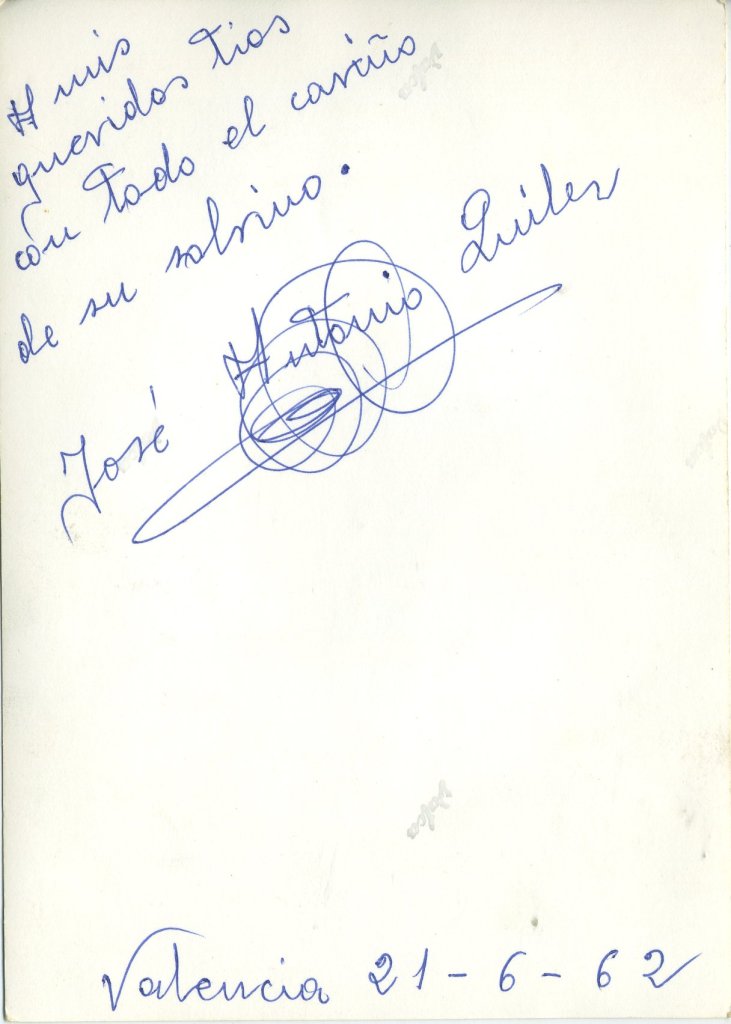 A mis
queridos tios
con todo el cariño
de su sobrino.
José Antonio Quilez
Valencia 21-6-62